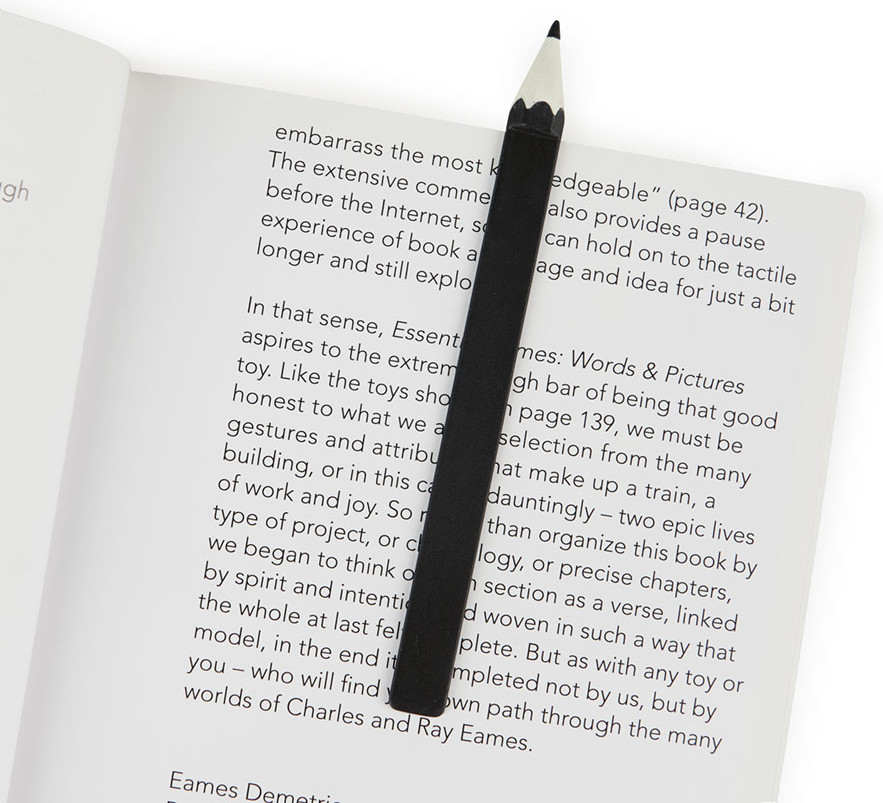 ugh
embarrass the most k edgeable” (page 42).
The extensive comme also provides a pause
before the Internet, so can hold on to the tactile
experience of book a age and idea for just a bit
longer and still explo
In that sense, Essent mes: Words & Pictures
aspires to the extrem gh bar of being that good
toy. Like the toys sho page 139, we must be
honest to what we a selection from the many
gestures and attribu hat make up a train, a
building, or in this ca dauntingly – two epic lives
of work and joy. So r than organize this book by
type of project, or ch logy, or precise chapters,
we began to think o section as a verse, linked
by spirit and intentio d woven in such a way that
the whole at last fel plete. But as with any toy or
model, in the end it mpleted not by us, but by
you – who will find y own path through the many
worlds of Charles and Ray Eames.
Eames Demetrio